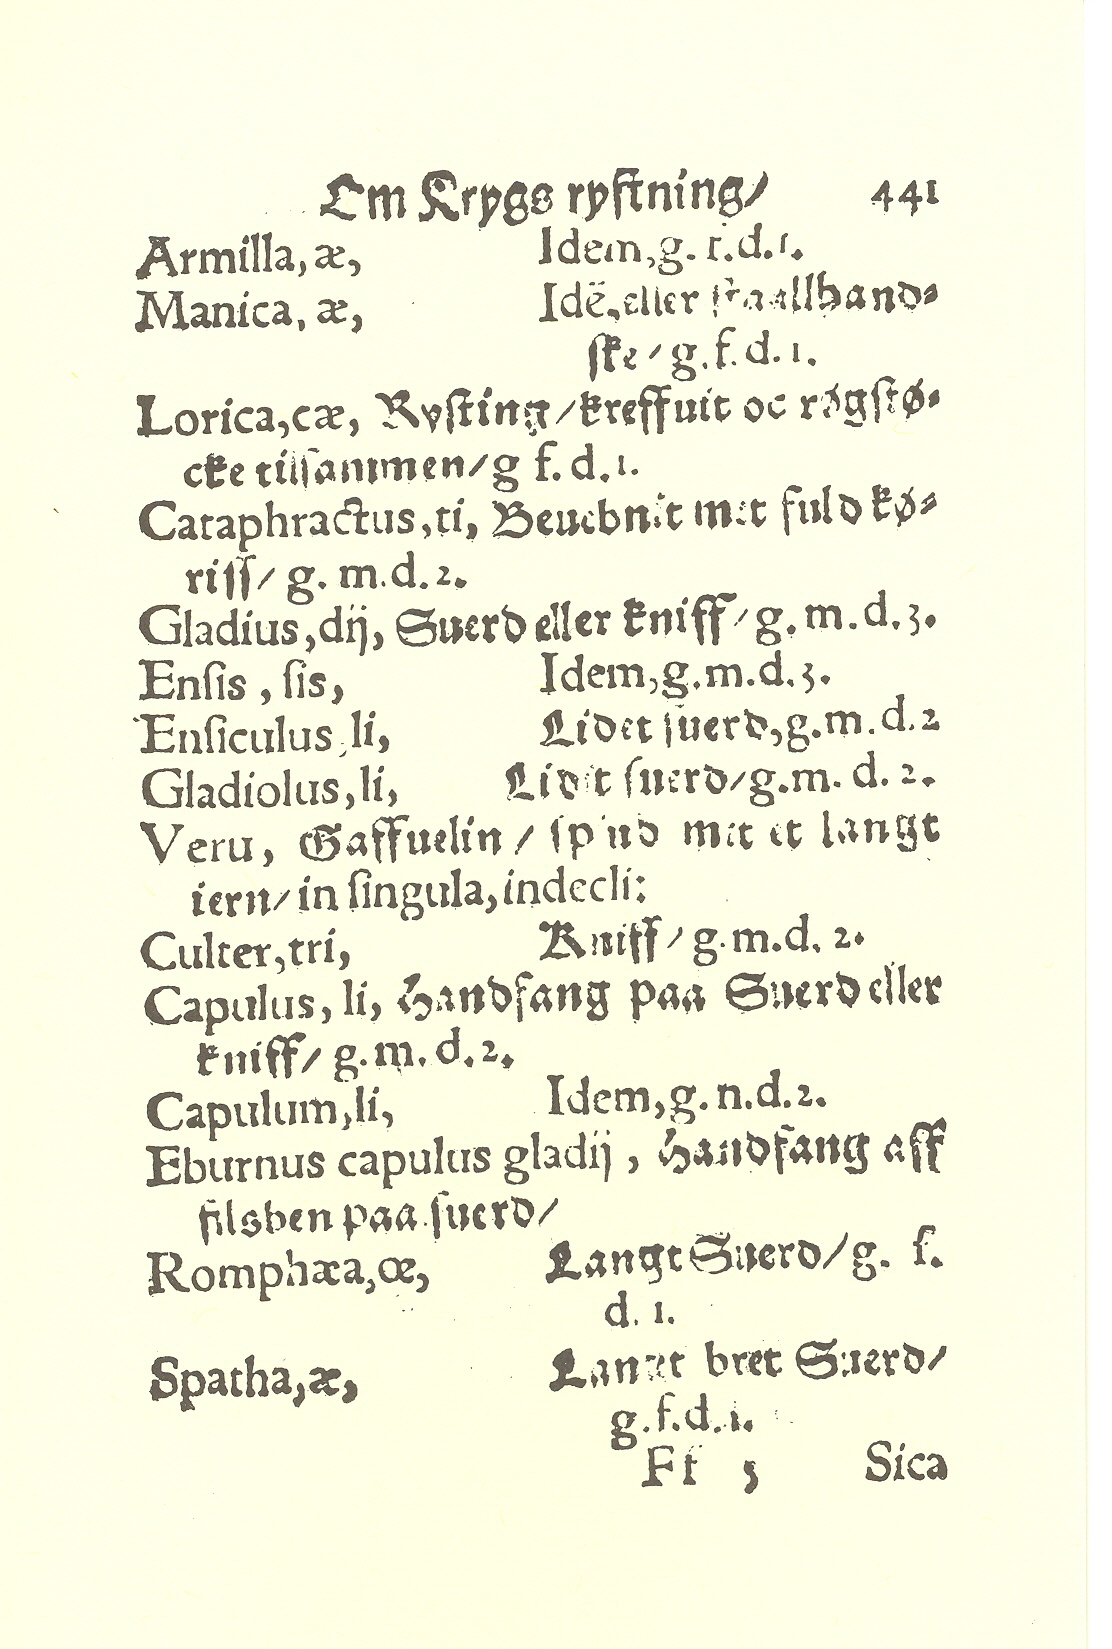 Om Krygs rystning/ 441
Armilla, æ, Idem, g. f. d. 1.
Manica, æ, Idē, eller staallhand⸗
ske / g. f. d. 1.
Lorica, cæ, Rysting / kreffuit oc røgstø⸗
cke tilsammen / g f. d. 1.
Cataphractus, ti, Beuebnit met fuld kø⸗
riſſ / g. m. d. 2.
Gladius, dij, Suerd eller kniff / g. m. d. 3.
Enſis, ſis, Idem, g. m. d. 3.
Enſiculus, li, Lidet ſuerd, g. m. d. 2
Gladiolus, li, Lidet ſuerd / g. m. d. 2.
Veru, Gaffuelin / ſpiud met et langt
iern / in ſingula, indecli:
Culter, tri, Kniff / g. m. d. 2.
Capulus, li, Handfang paa Suerd eller
kniff / g. m. d. 2.
Capulum, li, Idem, g. n. d. 2.
Eburnus capulus gladij, Handfang aff
filsben paa ſuerd /
Romphæa, œ, Langt Suerd / g. f.
d. 1.
Spatha, æ, Langt bret Suerd /
g. f. d. 1.
Ff 5 Sica